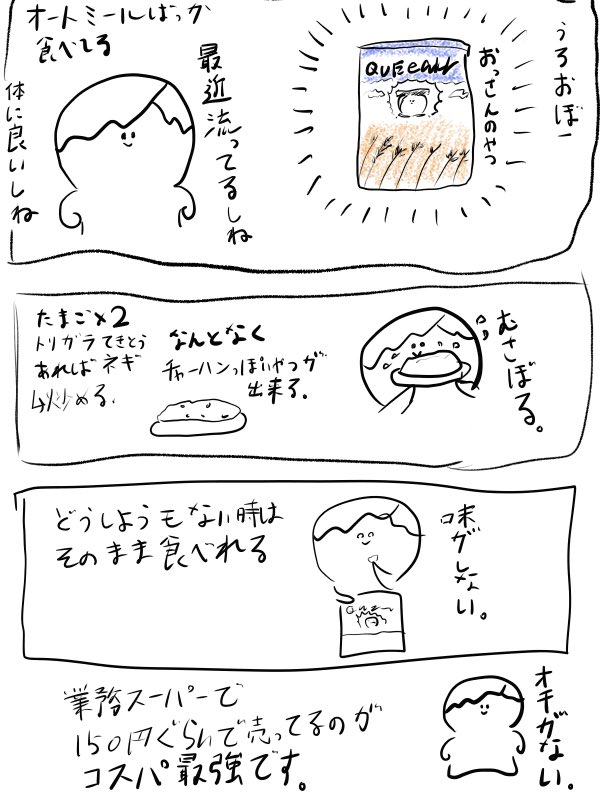 オートミールばっか
食べてる
最近流ってるしね
体に良いしね
うろおぼー
おっさんのやつ
QUEcan
むさぼる。
たまご×2
トリガラてきとう
あればネギ
炒める。
なんとなく
チャーハンっぽいやつが
出来る。
どうしようもない時は
そのまま食べれる
味がしない。
オチがない。
業務スーパーで
150円ぐらいで売ってるのが
コスパ最強です。